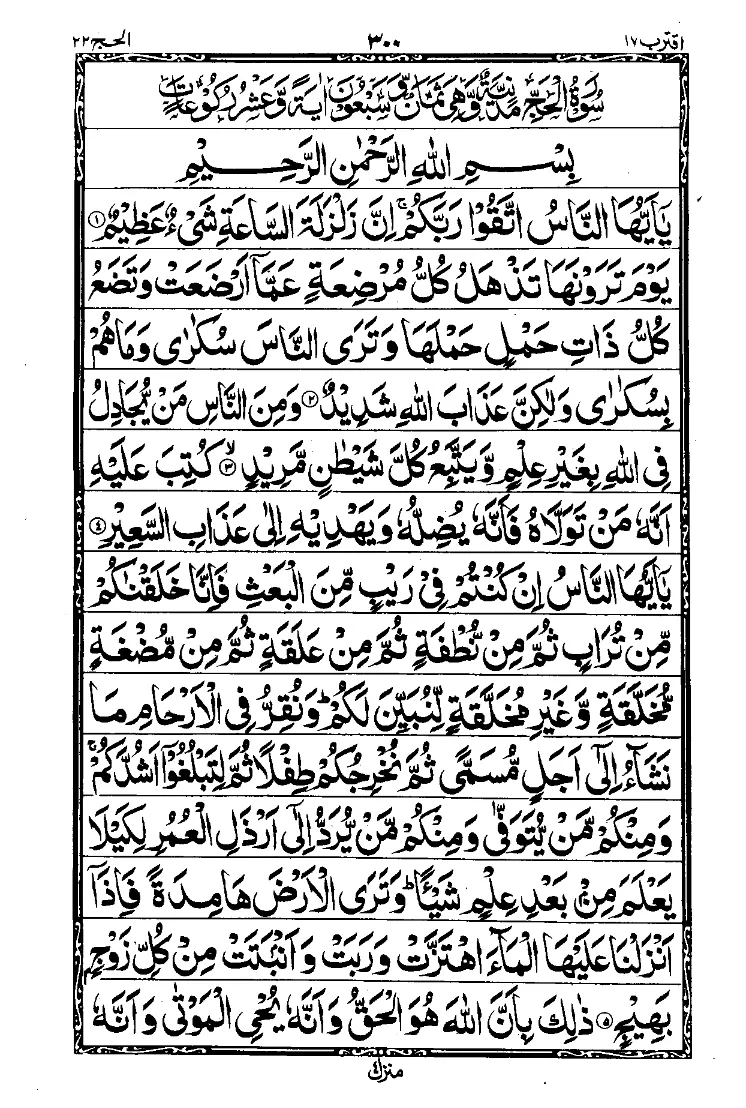 اقترب ١٧ ٣٠٠ الحج ٢٢
سُوْرَةُ الْحَجِّ مَدَنِيَّةٌ وَّهِيَ ثَمَانٌ وَّسَبْعُوْنَ اٰيَةً وَّعَشْرُ رُكُوْعَاتٍ
بِسْمِ اللهِ الرَّحْمٰنِ الرَّحِيْمِ
يٰۤاَيُّهَا النَّاسُ اتَّقُوْا رَبَّكُمْ ۚ اِنَّ زَلْزَلَةَ السَّاعَةِ شَيْءٌ عَظِيْمٌ ۝١
يَوْمَ تَرَوْنَهَا تَذْهَلُ كُلُّ مُرْضِعَةٍ عَمَّاۤ اَرْضَعَتْ وَتَضَعُ
كُلُّ ذَاتِ حَمْلٍ حَمْلَهَا وَتَرَى النَّاسَ سُكٰرٰى وَمَا هُمْ
بِسُكٰرٰى وَلٰكِنَّ عَذَابَ اللهِ شَدِيْدٌ ۝٢ وَمِنَ النَّاسِ مَنْ يُّجَادِلُ
فِى اللهِ بِغَيْرِ عِلْمٍ وَّيَتَّبِعُ كُلَّ شَيْطٰنٍ مَّرِيْدٍ ۙ۝٣ كُتِبَ عَلَيْهِ
اَنَّهٗ مَنْ تَوَلَّاهُ فَاَنَّهٗ يُضِلُّهٗ وَيَهْدِيْهِ اِلٰى عَذَابِ السَّعِيْرِ ۝٤
يٰۤاَيُّهَا النَّاسُ اِنْ كُنْتُمْ فِيْ رَيْبٍ مِّنَ الْبَعْثِ فَاِنَّا خَلَقْنٰكُمْ
مِّنْ تُرَابٍ ثُمَّ مِنْ نُّطْفَةٍ ثُمَّ مِنْ عَلَقَةٍ ثُمَّ مِنْ مُّضْغَةٍ
مُّخَلَّقَةٍ وَّغَيْرِ مُخَلَّقَةٍ لِّنُبَيِّنَ لَكُمْ ؕ وَنُقِرُّ فِى الْاَرْحَامِ مَا
نَشَآءُ اِلٰۤى اَجَلٍ مُّسَمًّى ثُمَّ نُخْرِجُكُمْ طِفْلًا ثُمَّ لِتَبْلُغُوْۤا اَشُدَّكُمْ ۚ
وَمِنْكُمْ مَّنْ يُّتَوَفّٰى وَمِنْكُمْ مَّنْ يُّرَدُّ اِلٰۤى اَرْذَلِ الْعُمُرِ لِكَيْلَا
يَعْلَمَ مِنْۢ بَعْدِ عِلْمٍ شَيْـًٔا ؕ وَتَرَى الْاَرْضَ هَامِدَةً فَاِذَاۤ
اَنْزَلْنَا عَلَيْهَا الْمَآءَ اهْتَزَّتْ وَرَبَتْ وَاَنْۢبَتَتْ مِنْ كُلِّ زَوْجٍۭ
بَهِيْجٍ ۝٥ ذٰلِكَ بِاَنَّ اللهَ هُوَ الْحَقُّ وَاَنَّهٗ يُحْيِ الْمَوْتٰى وَاَنَّهٗ
منزل ٤